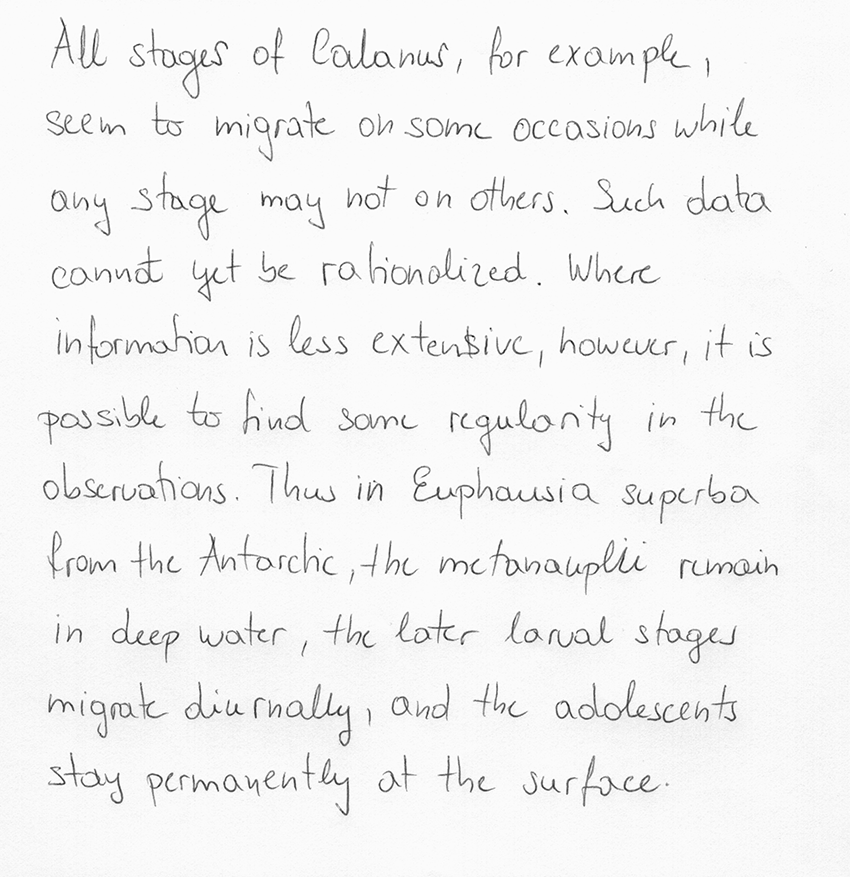 All stages of Calanus, for example,
seem to migrate on some occasions while
any stage may not on others. Such data
cannot yet be rationalized. Where
information is less extensive, however, it is
possible to find some regularity in the
observations. Thus in Euphausia superba
from the Antarctic, the metanauplii remain
in deep water, the later larval stages
migrate diurnally, and the adolescents
stay permanently at the surface.